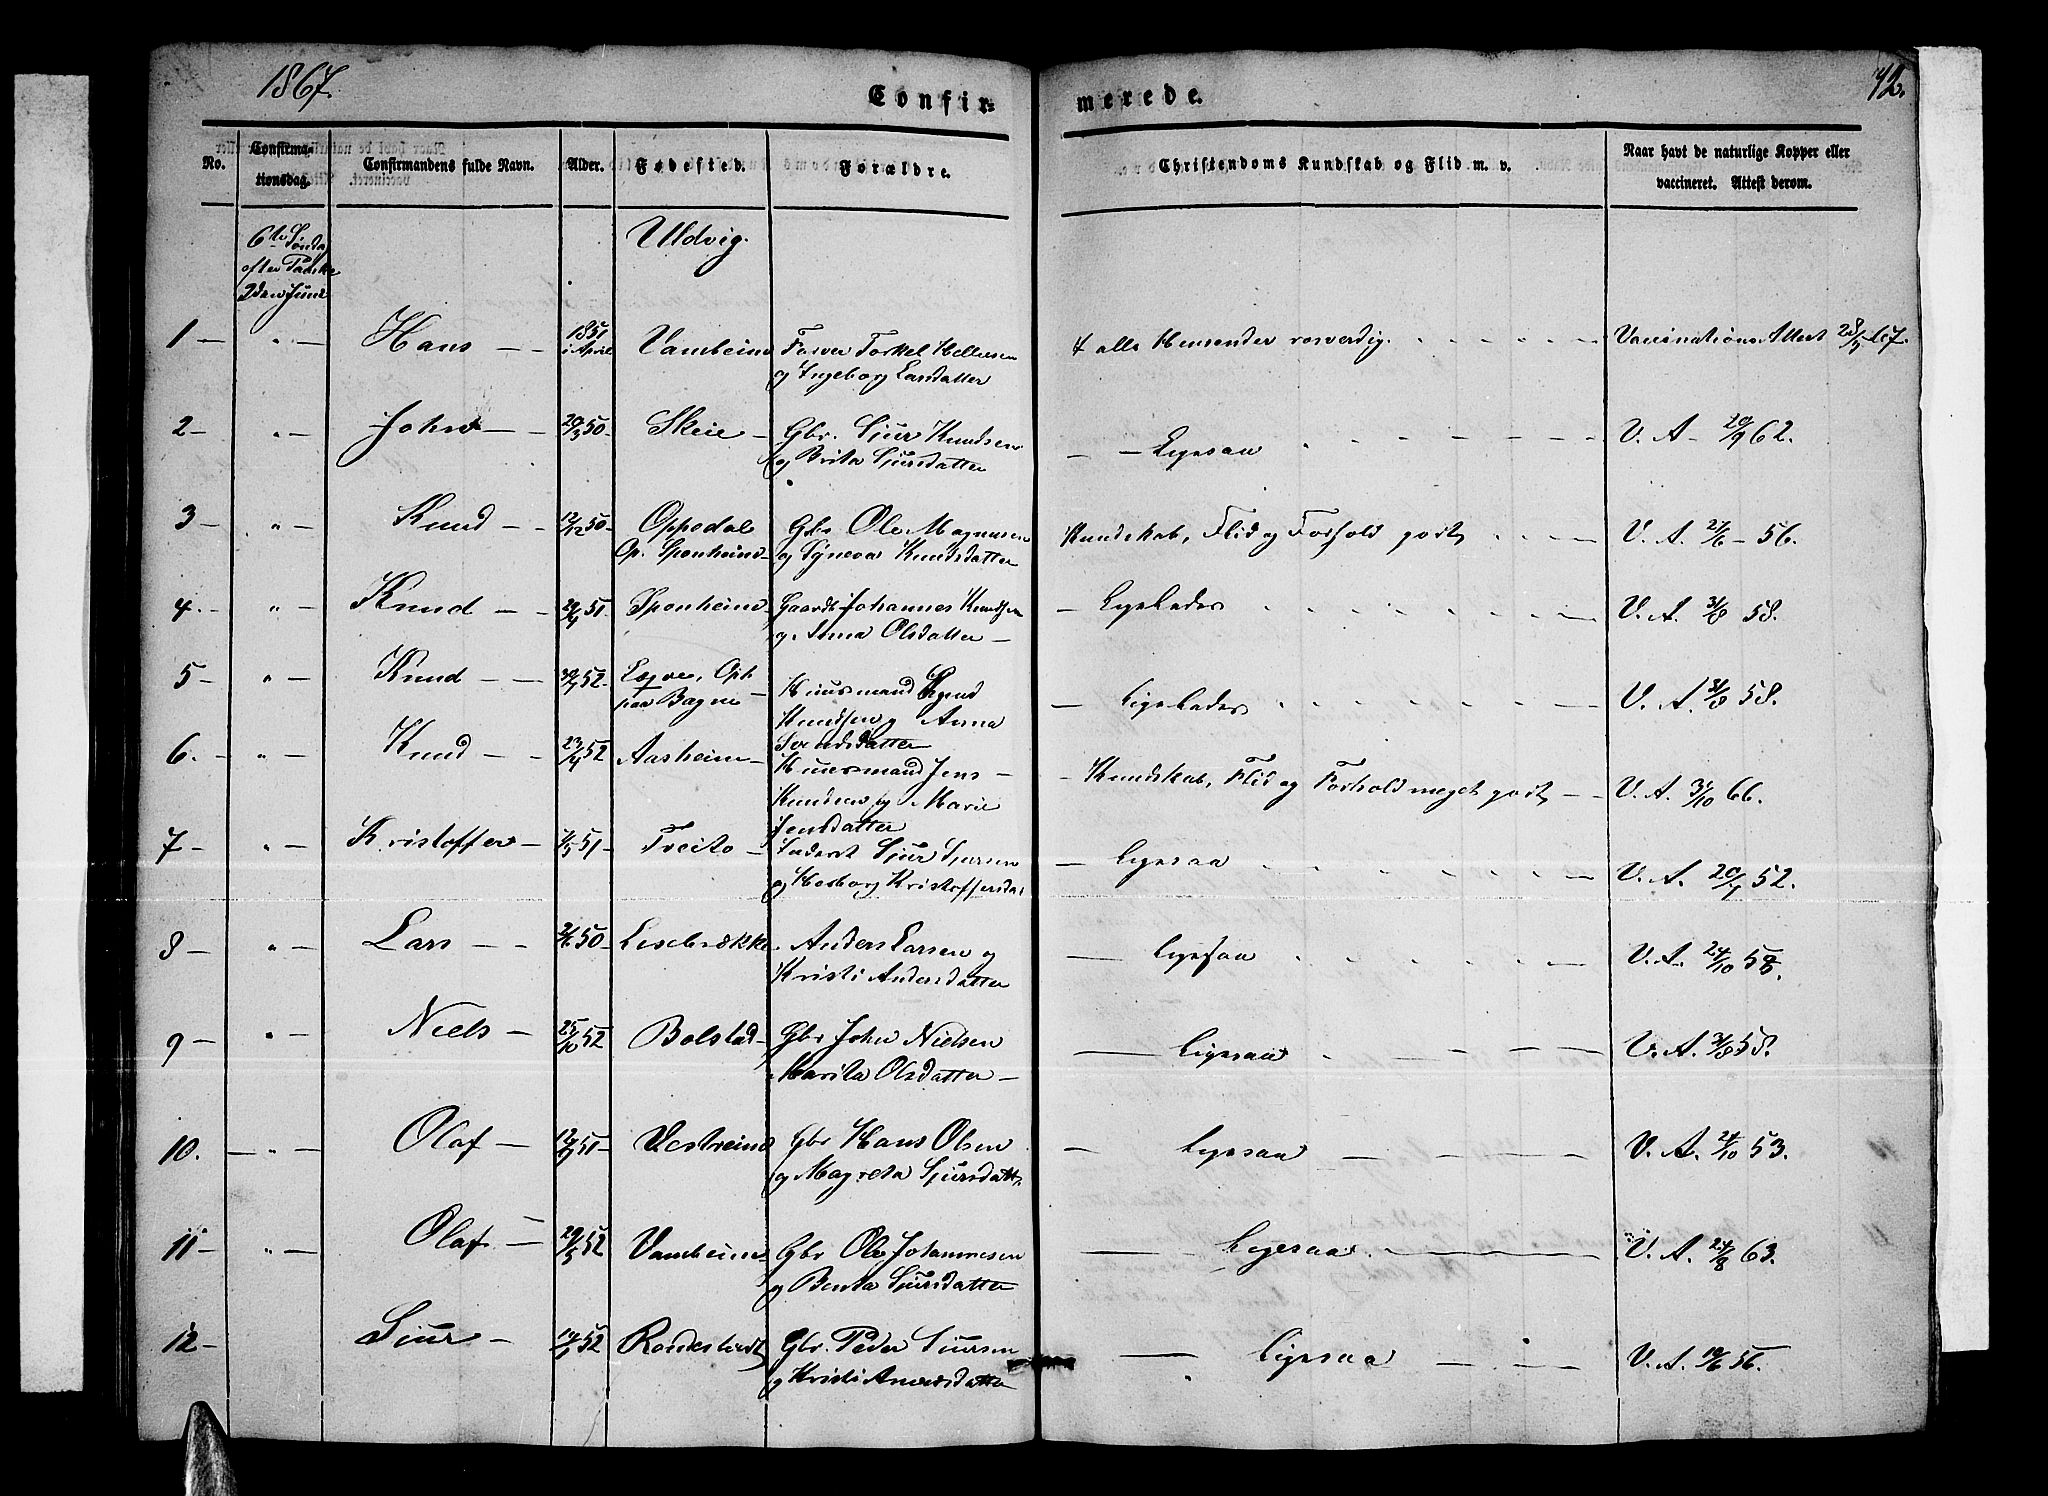 1867.
Confir=
merede.
72.
No.
Confirma-
tionsdag.
Confirmandens fulde Navn.
Alder.
Fødested.
Forældre.
Christendoms Kundskab og Flid m. v.
Naar havt de naturlige Kopper eller
vaccineret. Attest derom.
6te Sønda
efter Paaske
2den Juni
Ulvig.
1 — " — Hans — — 1851 i April Vambeim Farver Torkel Hellesen
og Ingeborg Larsdatter
i alle Henseender rosverdig. Vaccinations Attest 28/5 67.
2 — " — John — 20/3 50 — Skeie — Gbr. Sjur Knudsen
og Brita Sjursdatter
— — Ligesaa V. A — 20/9 62.
3 — " — Knud — — 12/12 50 — Oppedal Gbr Ole Magnusen
Op. Sponheim — og Syneva Knudsdatter
Kundskab, Flid og Forhold godt V. A. 27/6 — 56.
4. — " — Knud — — 51 — Sponheim Gaardb Johannes Knudsen
og Anna Olsdatter —
— Ligeledes V. A. 31/8 58.
5 — " — Knud — — 52 — Lægre, Oph
paa Bagne — Huusmand
Knudsen og Anna
Svendsdatter
— Ligeledes V. A. 31/8 58.
6. — " — Knud — — 23/4 52 Aasheim — Huusmand Jens —
Knudsen og Marie
Jensdatter
— Kundskab, Flid og Forhold meget godt — V. A. 31/10 66.
7 — " — Kristoffer — 51 — Treito — Inderst Sjur Sjursen
og Herborg Kristoffersda.
— Ligesaa V. A. 20/7 52.
8 — " — Lars — — 50 — Lisebrække. Anders Larsen og
Kristi Andersdatter
— Ligesaa V. A. 24/10 58.
9 — " — Niels — 25/10 52 Bolstad — Gbr John Nielsen
Marita Olsdatter —
— Ligesaa V. A. 31/8 58.
10. — " — Olaf — 51 — Vestreim Gbr Hans Olsen
og Magreta Sjursdatt.
— Ligesaa — V. A. 24/10 53.
11 — " — Olaf — 29/5 52 Vambeim Gbr Ole Johannesen
og Benta Sjursdatter
— Ligesaa — V. A. 24/8 63.
12 — " — Sjur — 52 Rondestvedt Gbr. Peder Sjursen
og Kristi
— Ligesaa — V. A. 19/6 56.